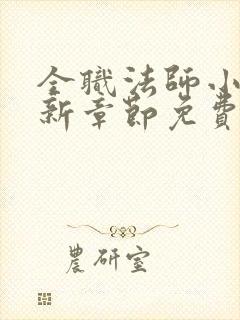 全職法師小
新章節免費
農研室